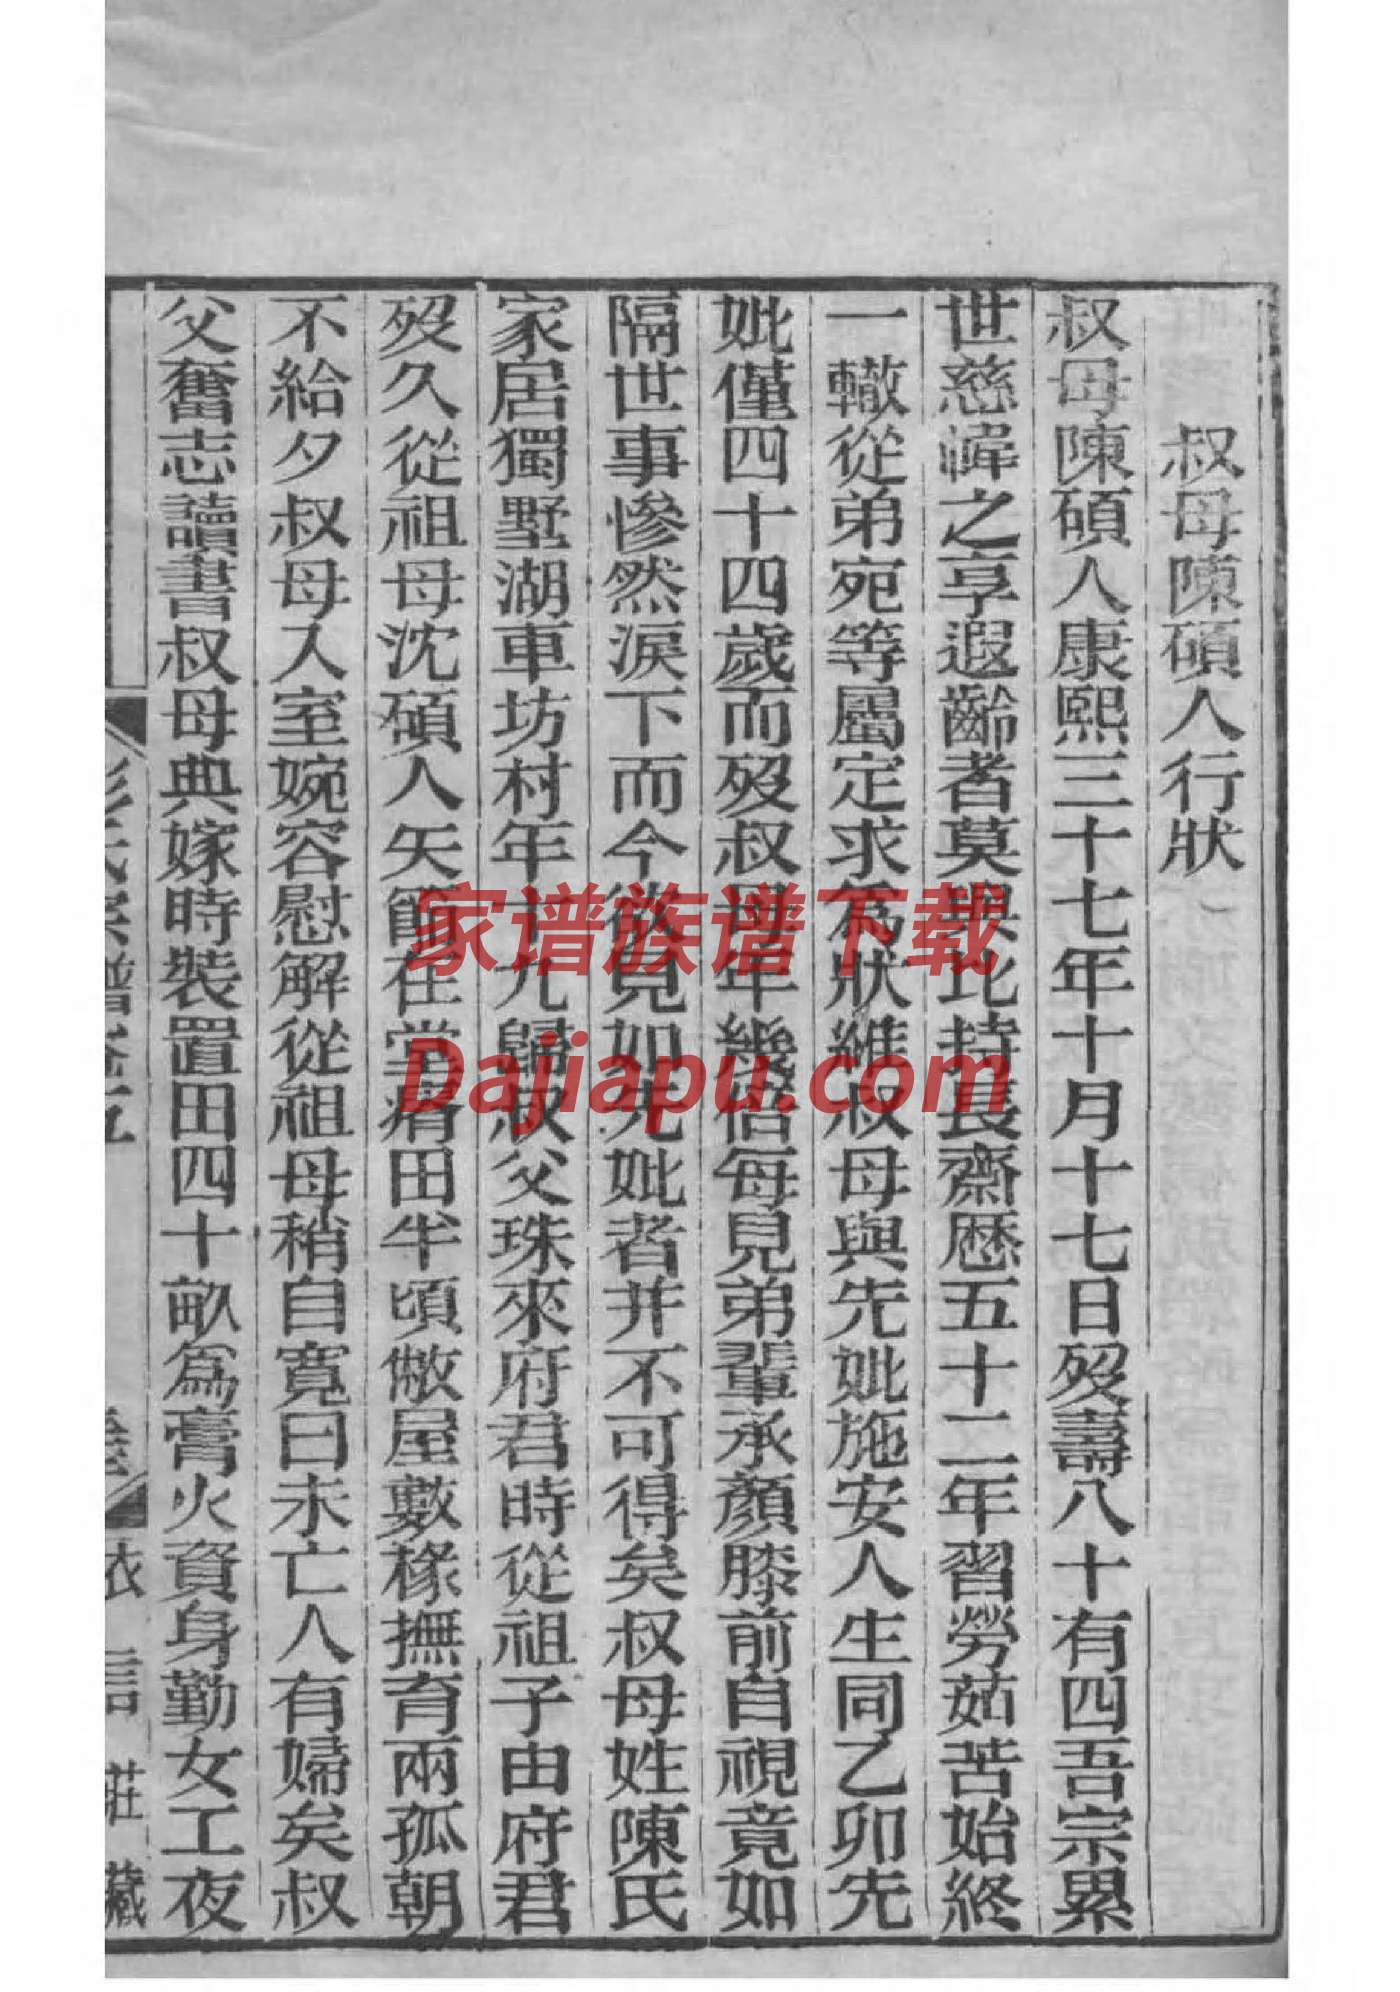 叔母陳碩人行狀
叔母陳碩人康熙三十七年十月十七日歿壽八十有四吾宗累
世慈幃之享遐齡者莫與比持長齋歷五十二年習勞茹苦始終
一轍從弟宛等屬定求爲狀維叔母與先妣施安人生同乙卯先
妣僅四十四歲而歿叔母年幾倍每見弟輩承顏膝前自視竟如
隔世事慘然淚下而今欲見如先妣者并不可得矣叔母姓陳氏
家居獨墅湖車坊村年十九歸叔父珠來府君時從祖子由府君
歿久從祖母沈碩人矢節在堂瘠田半頃敝屋數椽撫育兩孤朝
不給夕叔母入室婉容慰解從祖母稍自寬曰未亡人有婦矣叔
父奮志讀書叔母典嫁時裝置田四十畝爲膏火資身勤女工夜
彭氏宗譜卷五
衣言莊藏
家谱族谱下载
Dajiapu.com